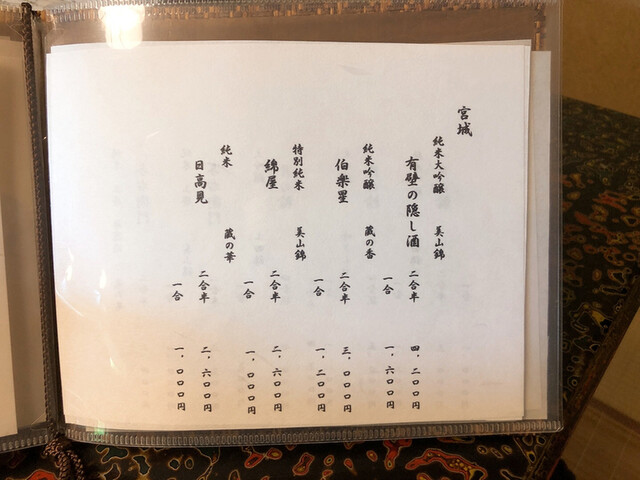 宮城
純米大吟醸 美山錦
有壁の隠し酒 二合半 四、二〇〇円
一合 一、六〇〇円
純米吟醸 蔵の香
伯楽星 二合半 三、〇〇〇円
一合 一、二〇〇円
特別純米 美山錦
綿屋 二合半 二、六〇〇円
一合 一、〇〇〇円
純米 蔵の華
日高見 二合半 二、六〇〇円
一合 一、〇〇〇円